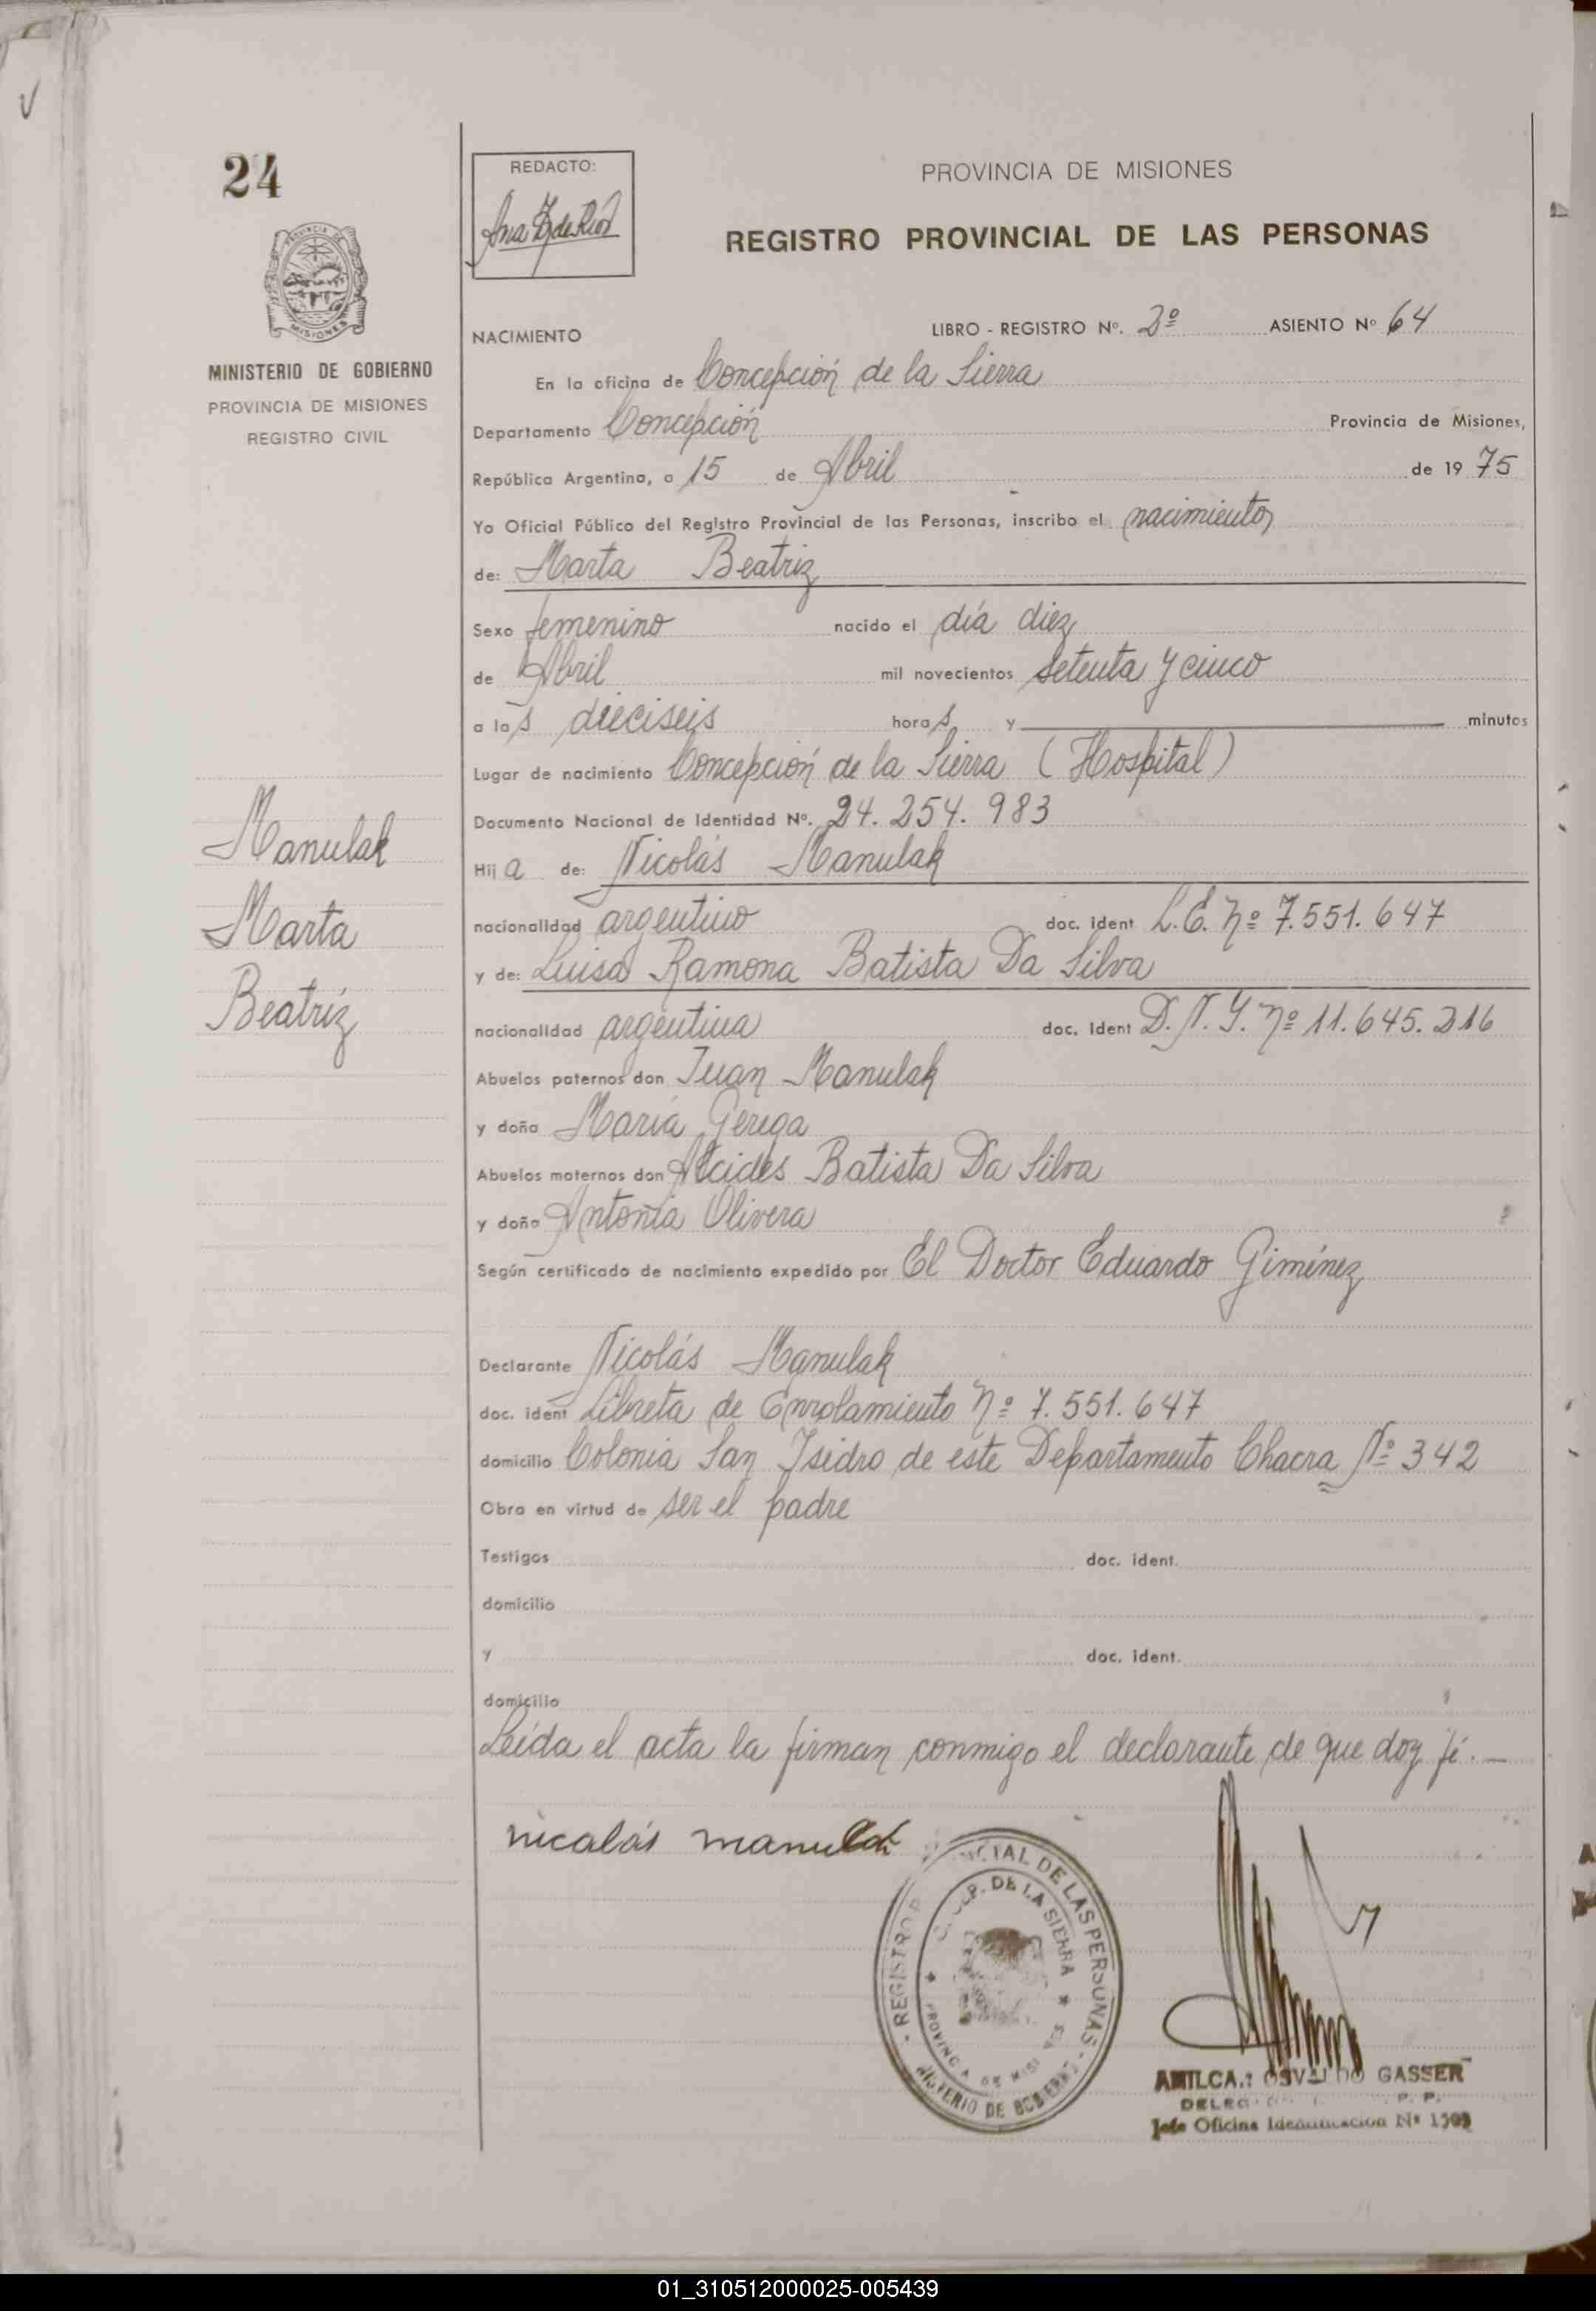 24
REDACTO:
PROVINCIA DE MISIONES
REGISTRO PROVINCIAL DE LAS PERSONAS
MISIONES
MINISTERIO DE GOBIERNO
PROVINCIA DE MISIONES
REGISTRO CIVIL
NACIMIENTO LIBRO - REGISTRO Nº. 2º ASIENTO Nº 64
En la oficina de Concepción de la Sierra
Departamento Concepción Provincia de Misiones,
República Argentina, a 15 de Abril de 19 75
Yo Oficial Público del Registro Provincial de las Personas, inscribo el nacimiento
de: Marta Beatriz
Sexo femenino nacido el día diez
de Abril mil novecientos setenta y cinco
a las dieciseis horas y minutos
Lugar de nacimiento Concepción de la Sierra (Hospital)
Documento Nacional de Identidad Nº. 24.254.983
Hija de: Nicolás Manulak
nacionalidad argentino doc. ident L.E. Nº 7.551.647
y de: Luisa Ramona Batista Da Silva
nacionalidad argentina doc. ident D.N.I. Nº 11.645.216
Abuelos paternos don Juan Manulak
y doña María Gerega
Abuelos maternos don Alcides Batista Da Silva
y doña Antonia Olivera
Según certificado de nacimiento expedido por El Doctor Eduardo Giménez
Declarante Nicolás Manulak
doc. ident Libreta de Enrolamiento Nº 7.551.647
domicilio Colonia San Isidro de este Departamento Chacra Nº 342
Obra en virtud de ser el padre
Testigos doc. ident.
domicilio
y doc. ident.
domicilio
Leída el acta la firman conmigo el declarante de que doy fé.—
Manulak
Marta
Beatriz
nicolás manulak
REGISTRO CIAL DE LAS PERSONAS
DE LA SIERRA
DE GOBIERNO
OSVALDO GASSER
Jefe Oficina Identificacion Nº
01_310512000025-005439